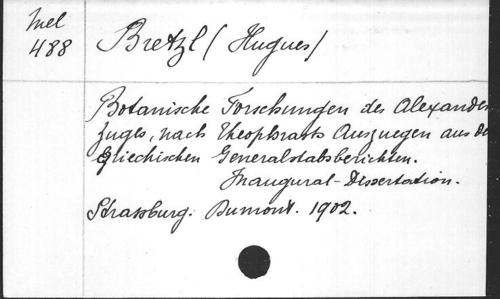 Mel
488
Bretzl (Hugues)
Botanische Forschungen des Alexander
zuges, nach Theophrasts Auszuegen aus de
griechischen Generalstabsberichten.
Inaugural-Dissertation.
Strassburg. Dumont. 1902.